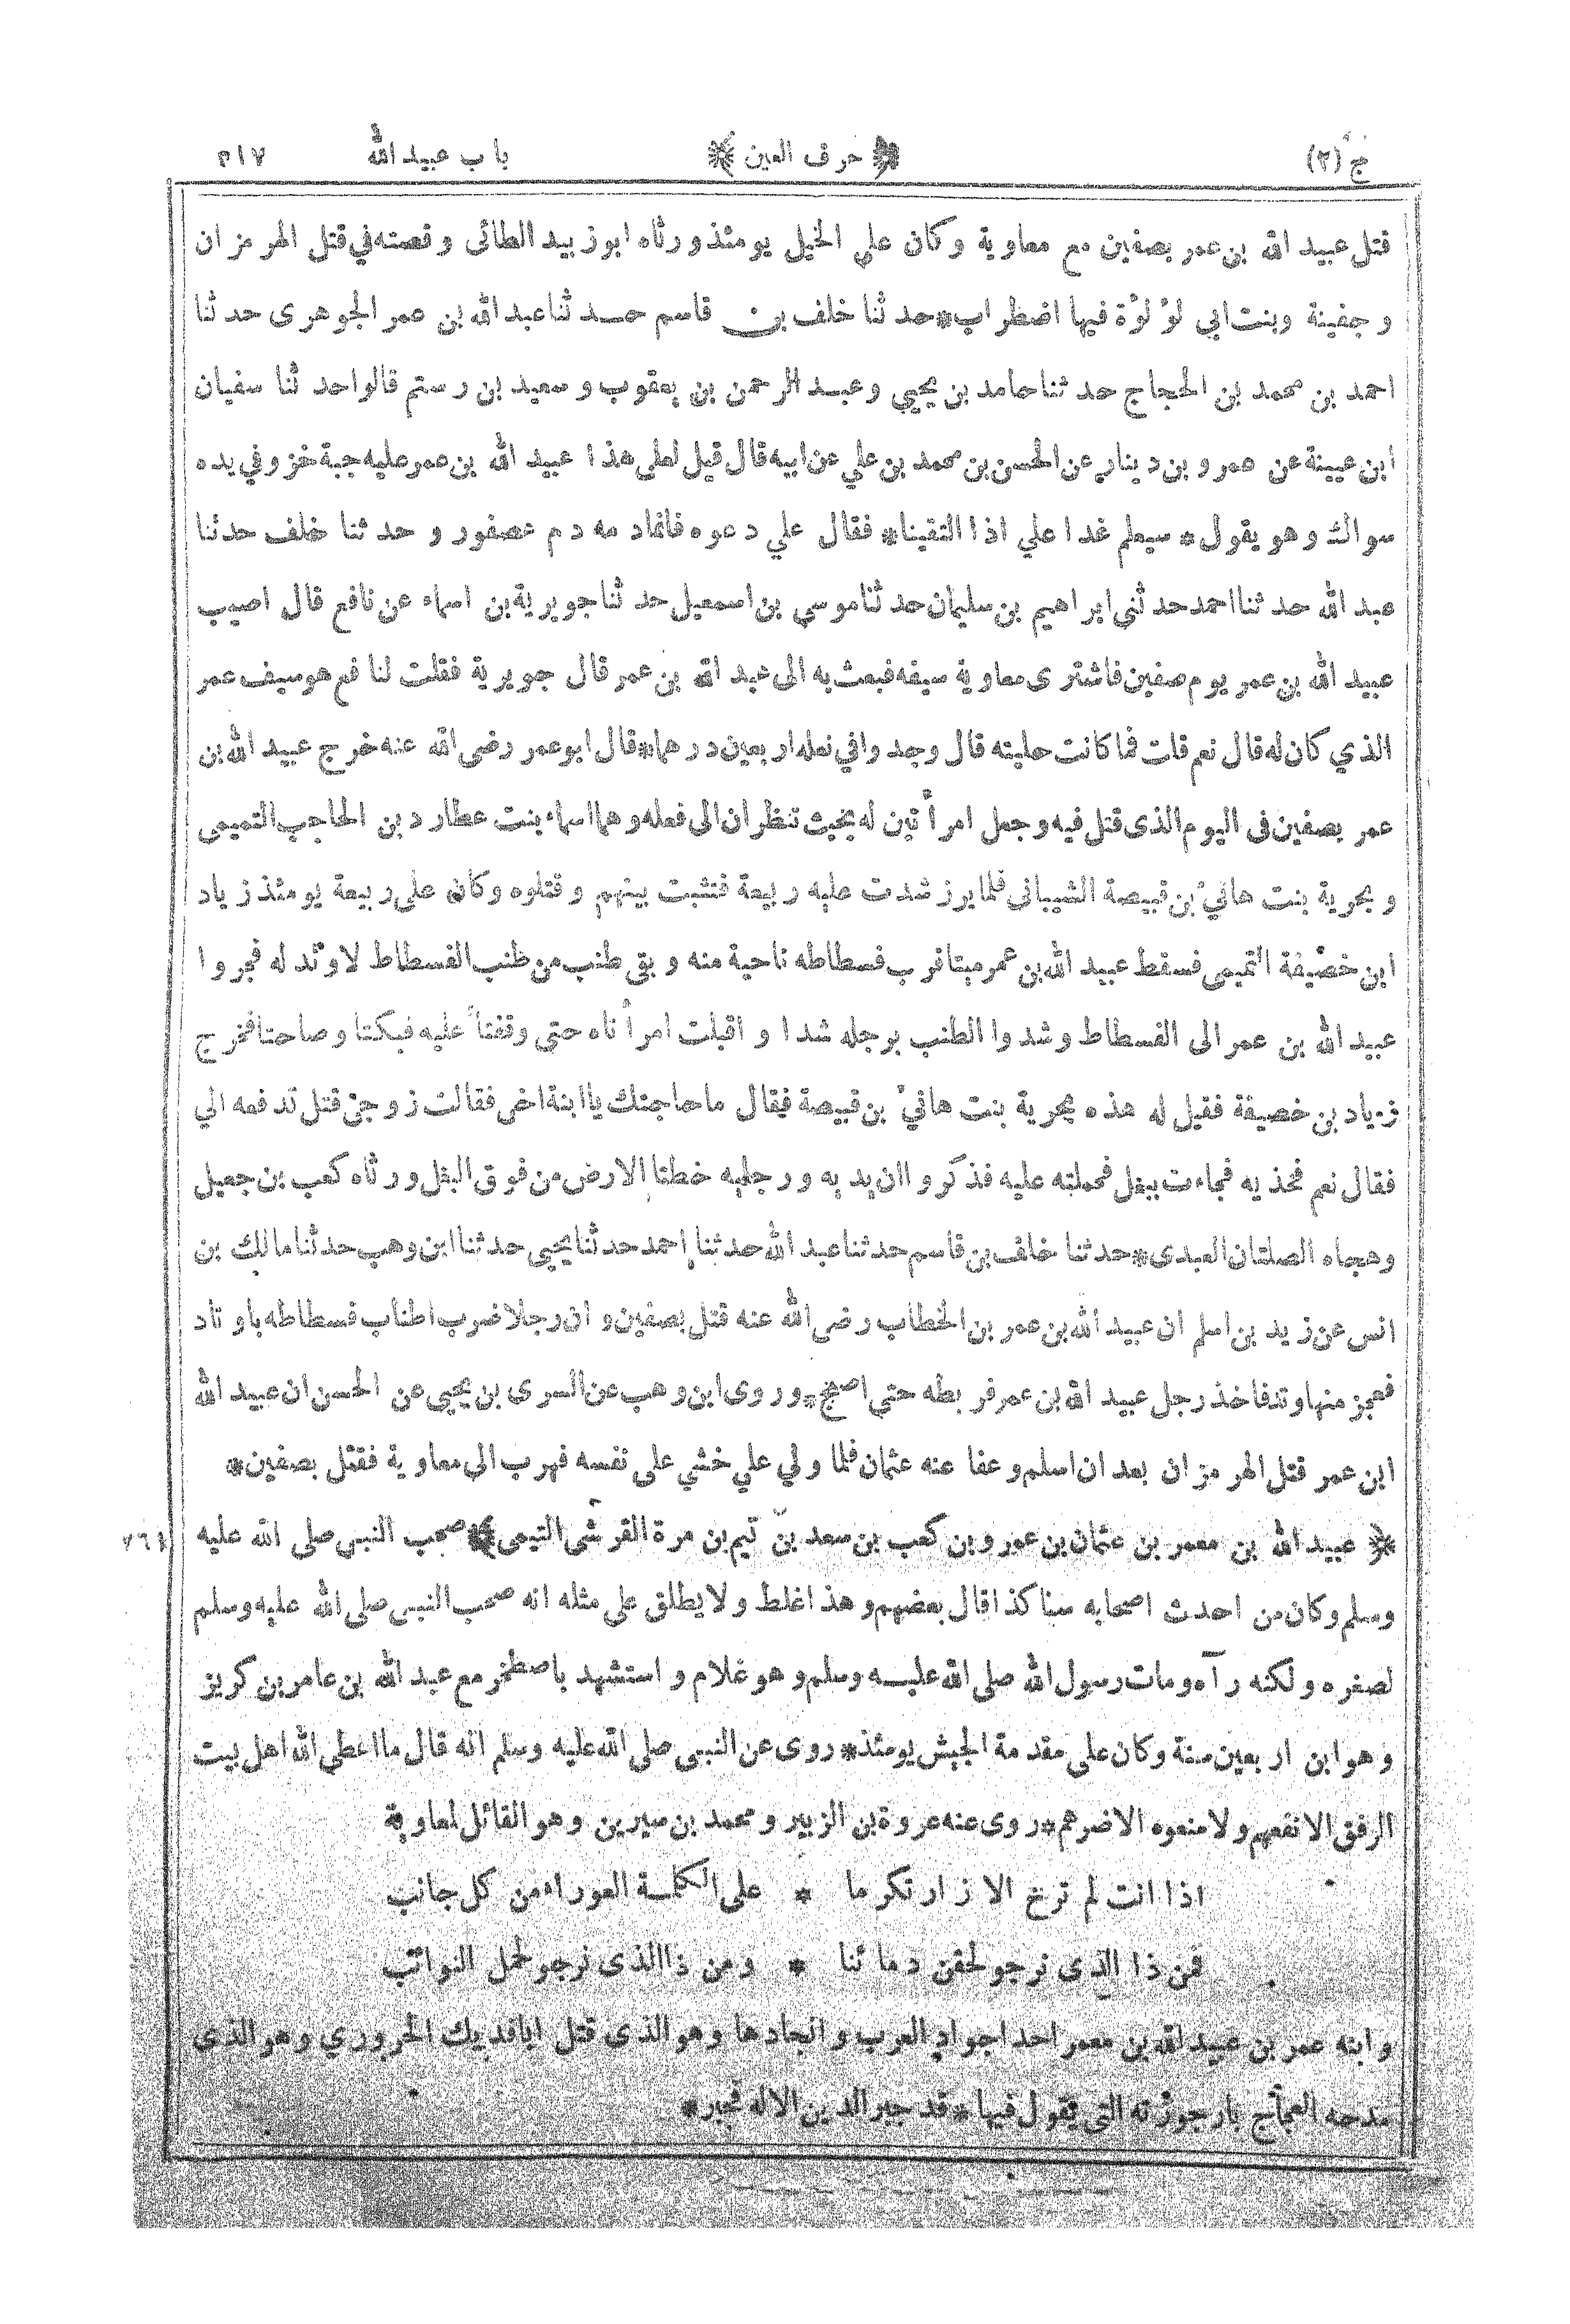 ج (٢) ﴿ حرف العين ﴾ باب عبيد الله ٤١٧
قتل عبيد الله بن عمر بصفين مع معاوية وكان علي الخيل يومئذ ورثاه ابو زبيد الطائى وقصته في قتل الهرمزان
وجفينة وبنت ابي لؤلؤة فيها اضطراب * حدثنا خلف بن قاسم حدثنا عبد الله بن عمر الجوهرى حدثنا
احمد بن محمد بن الحجاج حدثنا حامد بن يحيي وعبد الرحمن بن يعقوب وسعيد بن رستم قالوا حدثنا سفيان
ابن عيينة عن عمرو بن دينار عن الحسن بن محمد بن علي عن ابيه قال قيل لعلي هذا عبيد الله بن عمر عليه جبة خز وفي يده
سواك وهو يقول * سيعلم غدا علي اذا التقينا * فقال علي دعوه فانما دمه دم عصفور وحدثنا خلف حدثنا
عبد الله حدثنا احمد حدثنى ابراهيم بن سليمان حدثنا موسي بن اسمعيل حدثنا جويرية بن اسماء عن نافع قال اصيب
عبيد الله بن عمر يوم صفين فاشترى معاوية سيفه فبعث به الى عبد الله بن عمر قال جويرية فقلت لنافع هو سيف عمر
الذي كان له قال نعم قلت فما كانت حليته قال وجدوا في نعله اربعين درهما * قال ابو عمر رضى الله عنه خرج عبيد الله بن
عمر بصفين فى اليوم الذى قتل فيه وجعل امرأتين له بحيث تنظران الى فعله وهما اسماء بنت عطارد بن الحاجب التميمى
وبحرية بنت هانئ بن قبيصة الشيبانى فلما برز شدت عليه ربيعة فتثبت بينهم وقتلوه وكان على ربيعة يومئذ زياد
ابن خصيفة التميمى فسقط عبيد الله بن عمر ميتا قرب فسطاطه ناحية منه وبقى طنب من طنب الفسطاط لا وتد له فجروا
عبيد الله بن عمر الى الفسطاط وشدوا الطنب برجله شدا واقبلت امرأتاه حتى وقفتا عليه فبكتا وصاحتا فخرج
زياد بن خصيفة فقيل له هذه بحرية بنت هانئ بن قبيصة فقال ما حاجتك يا ابنة اخى فقالت زوجى قتل تدفعه الي
فقال نعم فخذيه فجاءت ببغل فحملته عليه فذكروا ان يديه ورجليه خطتا الارض من فوق البغل ورثاه كعب بن جعيل
وهجاه الصلتان العبدى * حدثنا خلف بن قاسم حدثنا عبد الله حدثنا احمد حدثنا يحيى حدثنا ابن وهب حدثنا مالك بن
انس عن زيد بن اسلم ان عبيد الله بن عمر بن الخطاب رضى الله عنه قتل بصفين وان رجلا ضرب اطناب فسطاطه باوتاد
فعجز منها وتد فاخذ رجل عبيد الله بن عمر فربطه حتى اصبح * وروى ابن وهب عن السرى بن يحيى عن الحسن ان عبيد الله
ابن عمر قتل الهرمزان بعد ان اسلم وعفا عنه عثمان فلما ولي علي خشي على نفسه فهرب الي معاوية فقتل بصفين *
﴿ عبيد الله بن معمر بن عثمان بن عمرو بن كعب بن سعد بن تيم بن مرة القرشى التيمى ﴾ صحب النبى صلى الله عليه
وسلم وكان من احدث اصحابه سنا كذا قال بعضهم وهذا غلط ولا يطلق على مثله انه صحب النبى صلى الله عليه وسلم
لصغره ولكنه رآه ومات رسول الله صلى الله عليه وسلم وهو غلام واستشهد باصطخر مع عبد الله بن عامر بن كريز
وهو ابن اربعين سنة وكان على مقدمة الجيش يومئذ * روى عن النبى صلى الله عليه وسلم انه قال ما اعطى الله اهل بيت
الرفق الا نفعهم ولا منعوه الا ضرهم * روى عنه عروة بن الزبير ومحمد بن سيرين وهو القائل لمعاوية
اذا انت لم ترخ الازار تكرما * على الكلمة العوراء من كل جانب
فمن ذا الذى نرجو لحقن دمائنا * ومن ذا الذى نرجو لحمل النوائب
وابنه عمر بن عبيد الله بن معمر احد اجواد العرب وانجادها وهو الذى قتل ابا فديك الحروري وهو الذى
مدحه العجاج بارجوزته التى يقول فيها * قد جبر الدين الاله فجبر *